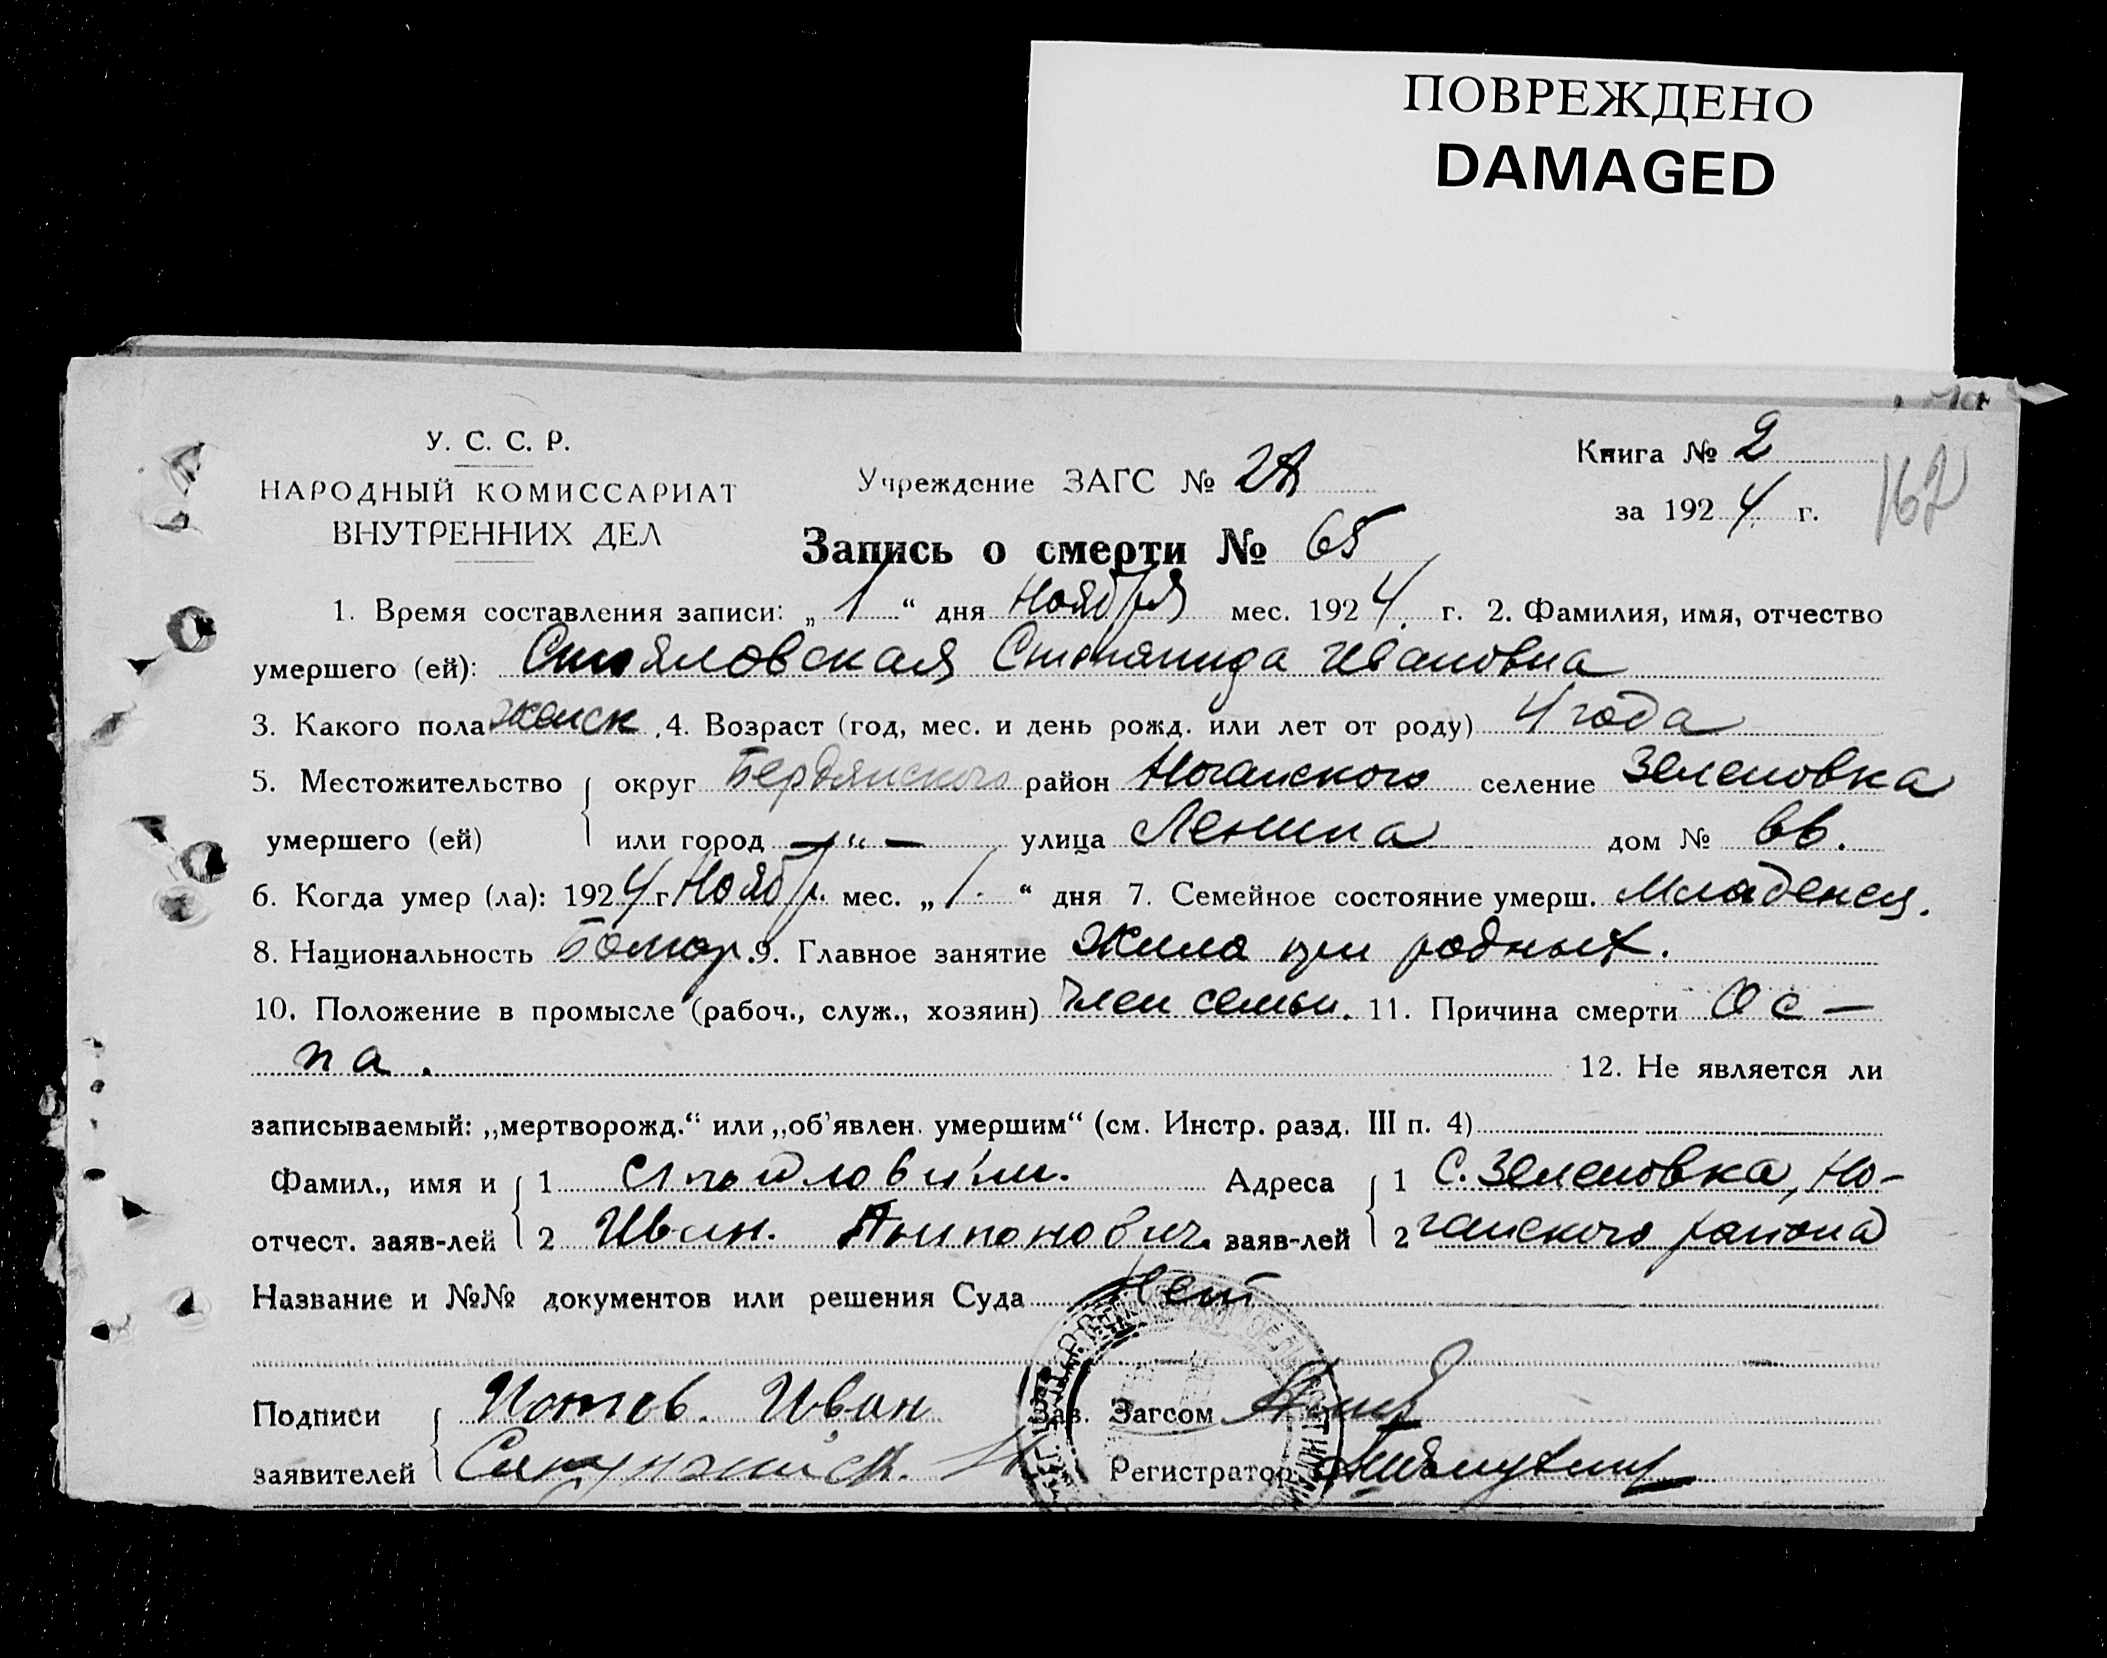 ПОВРЕЖДЕНО
DAMAGED
У. С. С. Р.
НАРОДНЫЙ КОМИССАРИАТ
ВНУТРЕННИХ ДЕЛ
Учреждение ЗАГС №
Книга № 2
за 1924 г.
162
Запись о смерти № 65
1. Время составления записи: „1“ дня Ноября мес. 1924 г. 2. Фамилия, имя, отчество
умершего (ей): Стояловская Степанида Ивановна
3. Какого пола женск. 4. Возраст (год, мес. и день рожд. или лет от роду) 4 года
5. Местожительство округ Бердянского район Ногайского селение Зеленовка
умершего (ей) или город —„— улица Ленина дом №
6. Когда умер (ла): 1924 г. Ноябр. мес. „1“ дня 7. Семейное состояние умерш. Младенец.
8. Национальность 9. Главное занятие Жила при родных.
10. Положение в промысле (рабоч., служ., хозяин) член семьи. 11. Причина смерти Ос-
па. 12. Не является ли
записываемый: „мертворожд.“ или „об'явлен. умершим“ (см. Инстр. разд. III п. 4)
Фамил., имя и 1 Адреса 1 С. Зеленовка, Но-
отчест. заяв-лей 2 Иван. заяв-лей 2 гайского района
Название и №№ документов или решения Суда Нет
Подписи Иван Зав. Загсом
заявителей Регистратор